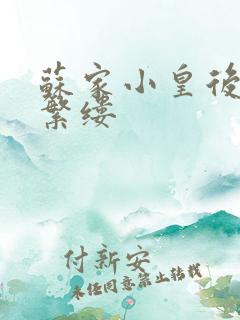 蘇家小皇後
繁缕
付新安
未经同意禁止转载